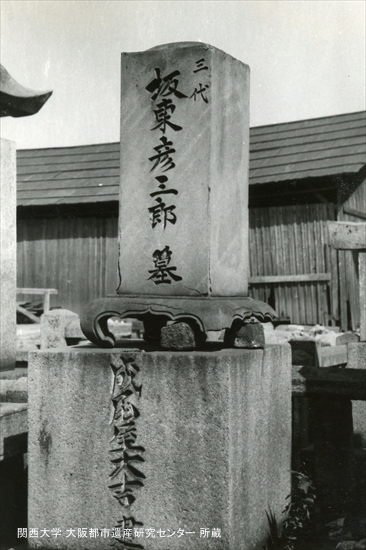 三代
坂東彦三郎墓
屋太吉建
関西大学 大阪都市遺産研究センター 所蔵